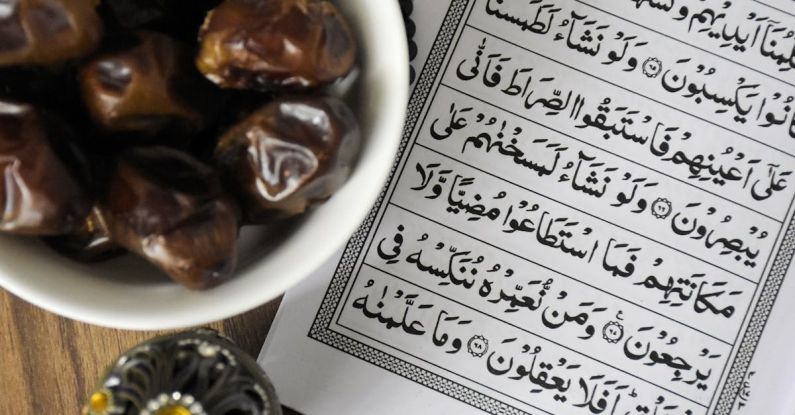 تُكَلِّمُنَاۤ اَيْدِيْهِمْ وَتَشْهَدُ
كَانُوْا يَكْسِبُوْنَ ۝٦٥ وَلَوْ نَشَآءُ لَطَمَسْنَا
عَلٰۤى اَعْيُنِهِمْ فَاسْتَبَقُوا الصِّرَاطَ فَاَنّٰى
يُبْصِرُوْنَ ۝٦٦ وَلَوْ نَشَآءُ لَمَسَخْنٰهُمْ عَلٰى
مَكَانَتِهِمْ فَمَا اسْتَطَاعُوْا مُضِيًّا وَّلَا
يَرْجِعُوْنَ ۝٦٧ وَمَنْ نُّعَمِّرْهُ نُنَكِّسْهُ فِى
الْخَلْقِ ؕ اَفَلَا يَعْقِلُوْنَ ۝٦٨ وَمَا عَلَّمْنٰهُ